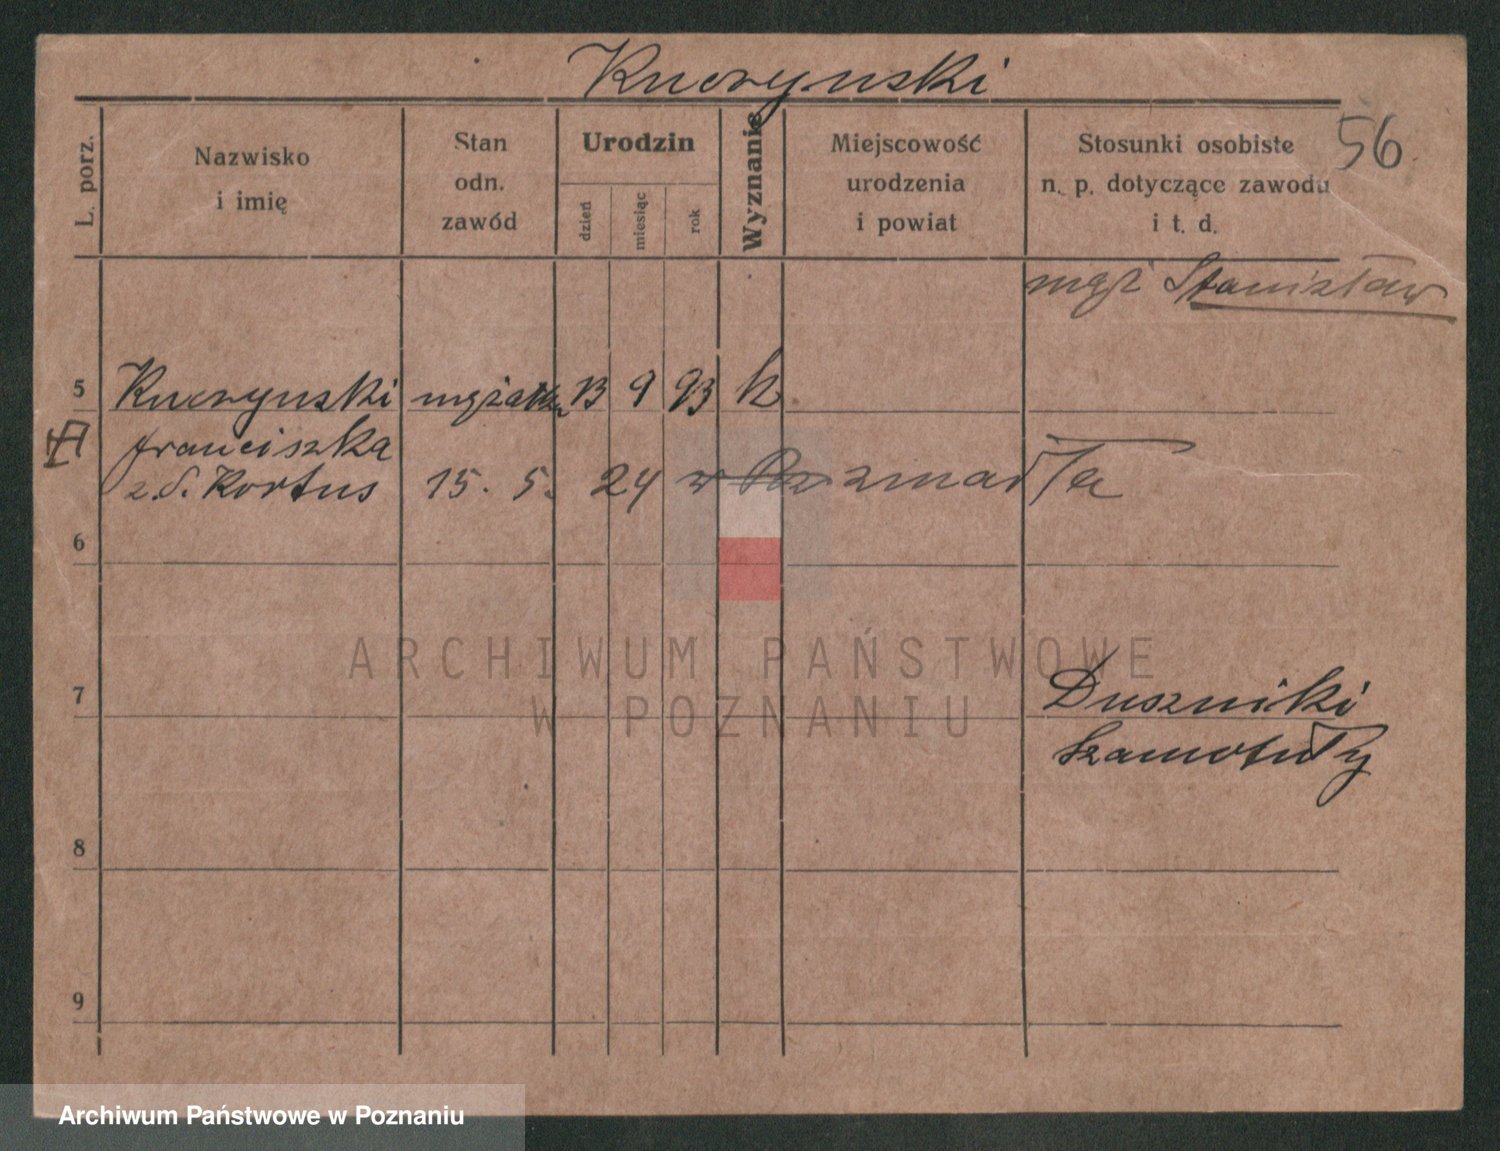 Kuczynski
56
L. porz.
Nazwisko
i imię
Stan
odn.
zawód
Urodzin
dzień
miesiąc
rok
Wyznanie
Miejscowość
urodzenia
i powiat
Stosunki osobiste
n. p. dotyczące zawodu
i t. d.
mąż Stanisław
5
Kuczynski
13 9 93 k
Franciszka
z d. Kortus 15. 5. 24 w zmarła
6
ARCHIWUM PAŃSTWOWE
W POZNANIU
7
Duszniki
Szamotuły
8
9
Archiwum Państwowe w Poznaniu